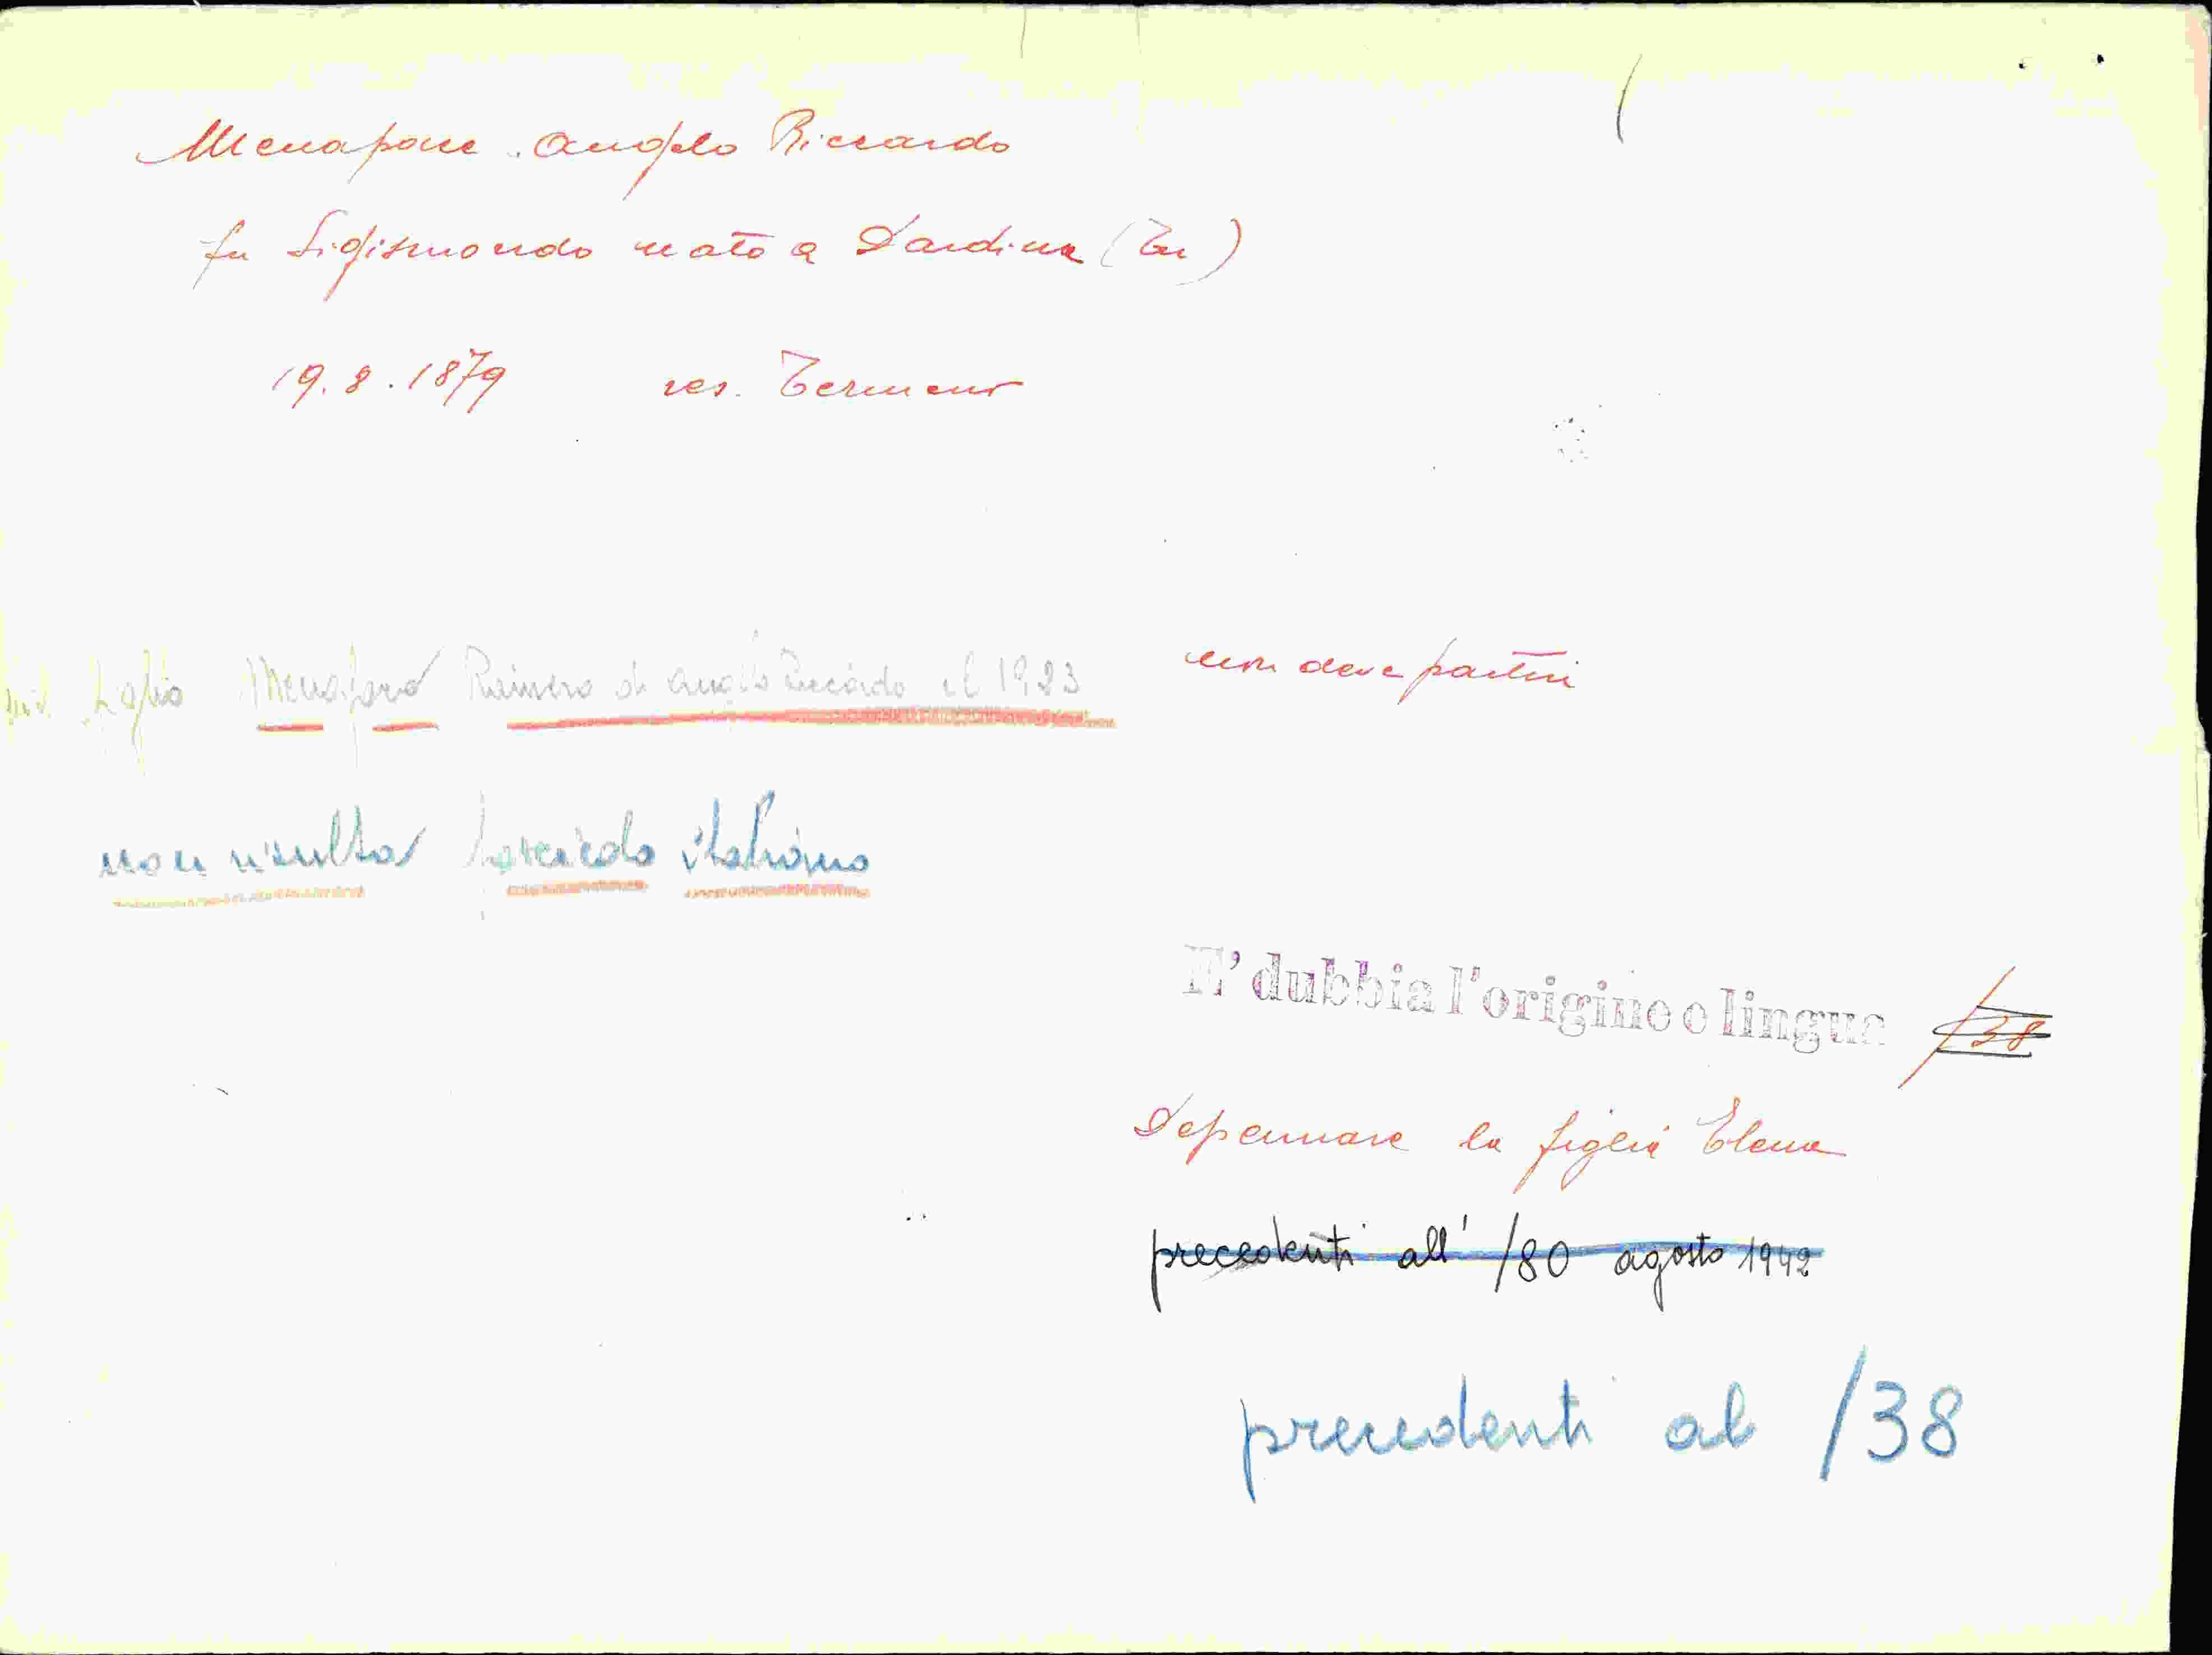 Menapace Angelo Riccardo
fu Sigismondo nato a Dardine (Tn)
19.8.1879 res. Termeno
figlio Menapace Rainero di Angelo Riccardo 1923
non deve partire
non risulta fascicolo italiano
E' dubbia l'origine o lingua /38
Depennare la figlia Elena
precedenti all' /80 agosto 1942
precedenti al /38